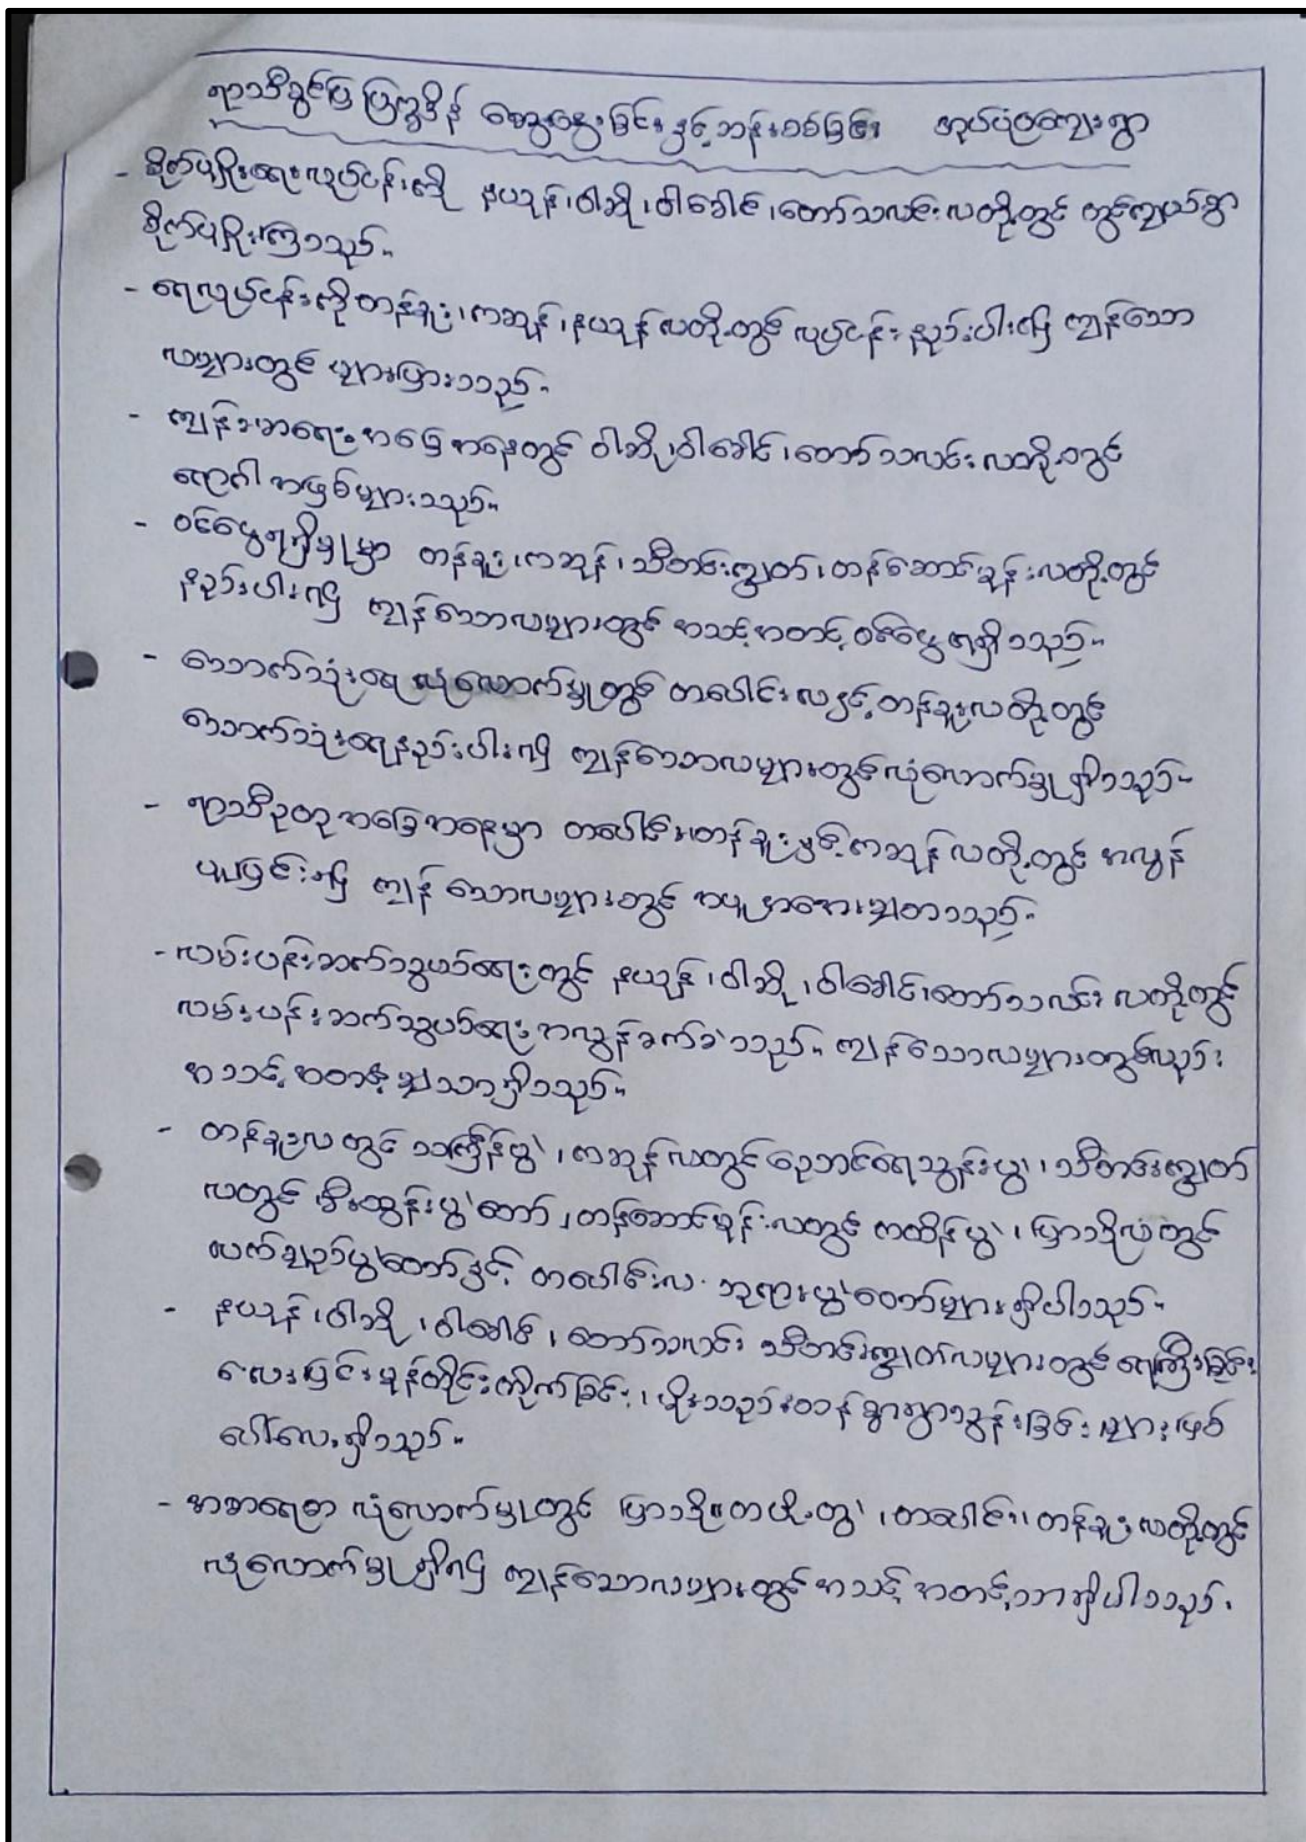 ရာသီခွင်ပြ ပြက္ခဒိန် ဆွေးနွေးခြင်းနှင့်ဆန်းစစ်ခြင်း အုပ်ပုံကျေးရွာ
- စိုက်ပျိုးရေးလုပ်ငန်းကို နယုန်၊ဝါဆို၊ဝါခေါင်၊တော်သလင်းလတို့တွင် တွင်ကျယ်စွာ
စိုက်ပျိုးကြသည်။
- ရေလုပ်ငန်းကိုတန်ခူး၊ကဆုန်၊နယုန်လတို့တွင် လုပ်ငန်းနည်းပါး၍ ကျန်သော
လများတွင် များပြားသည်။
- ကျန်းမာရေးအခြေအနေတွင် ဝါဆို၊ဝါခေါင်၊တော်သလင်းလတို့တွင်
ရောဂါအဖြစ်များသည်။
- ဝင်ငွေရရှိမှုမှာ တန်ခူး၊ကဆုန်၊သီတင်းကျွတ်၊တန်ဆောင်မုန်းလတို့တွင်
နည်းပါး၍ ကျန်သောလများတွင် အသင့်အတင့်ဝင်ငွေရရှိသည်။
- သောက်သုံးရေလုံလောက်မှုတွင် တပေါင်းလနှင့်တန်ခူးလတို့တွင်
သောက်သုံးရေနည်းပါး၍ ကျန်သောလများတွင်လုံလောက်မှုရှိသည်။
- ရာသီဥတုအခြေအနေမှာ တပေါင်း၊တန်ခူးနှင့်ကဆုန်လတို့တွင် အလွန်
ပူပြင်း၍ ကျန်သောလများတွင် အပူအအေးမျှတသည်။
- လမ်းပန်းဆက်သွယ်ရေးတွင် နယုန်၊ဝါဆို၊ဝါခေါင်၊တော်သလင်း လတို့တွင်
လမ်းပန်းဆက်သွယ်ရေးအလွန်ခက်ခဲသည်။ ကျန်သောလများတွင်လည်း
အသင့်အတင့်မျှသာရှိသည်။
- တန်ခူးလတွင် သင်္ကြန်ပွဲ၊ကဆုန်လတွင်ညောင်ရေသွန်းပွဲ၊သီတင်းကျွတ်
လတွင် မီးထွန်းပွဲတော်၊တန်ဆောင်မုန်းလတွင် ကထိန်ပွဲ၊ပြာသိုလတွင်
လက်ချည်ပွဲတော်နှင့် တပေါင်းလ ဘုရားပွဲတော်များရှိပါသည်။
- နယုန်၊ဝါဆို၊ဝါခေါင်၊တော်သလင်း သီတင်းကျွတ်လများတွင် ရေကြီးခြင်း၊
လေပြင်းမုန်တိုင်းတိုက်ခြင်း၊မိုးသည်းထန်စွာရွာသွန်းခြင်းများဖြစ်
ပေါ်လေ့ရှိသည်။
- အစာရေစာ လုံလောက်မှုတွင် ပြာသို၊တပို့တွဲ၊တပေါင်း၊တန်ခူးလတို့တွင်
လုံလောက်မှုရှိ၍ ကျန်သောလများတွင် အသင့်အတင့်သာရှိပါသည်။